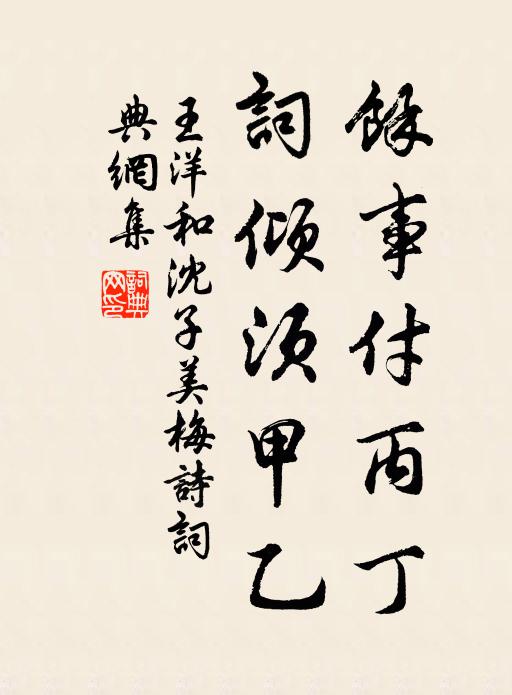 餘事付丙丁
詞傾須甲乙
王洋和沈子美梅詩詞
典網集
詞典網印